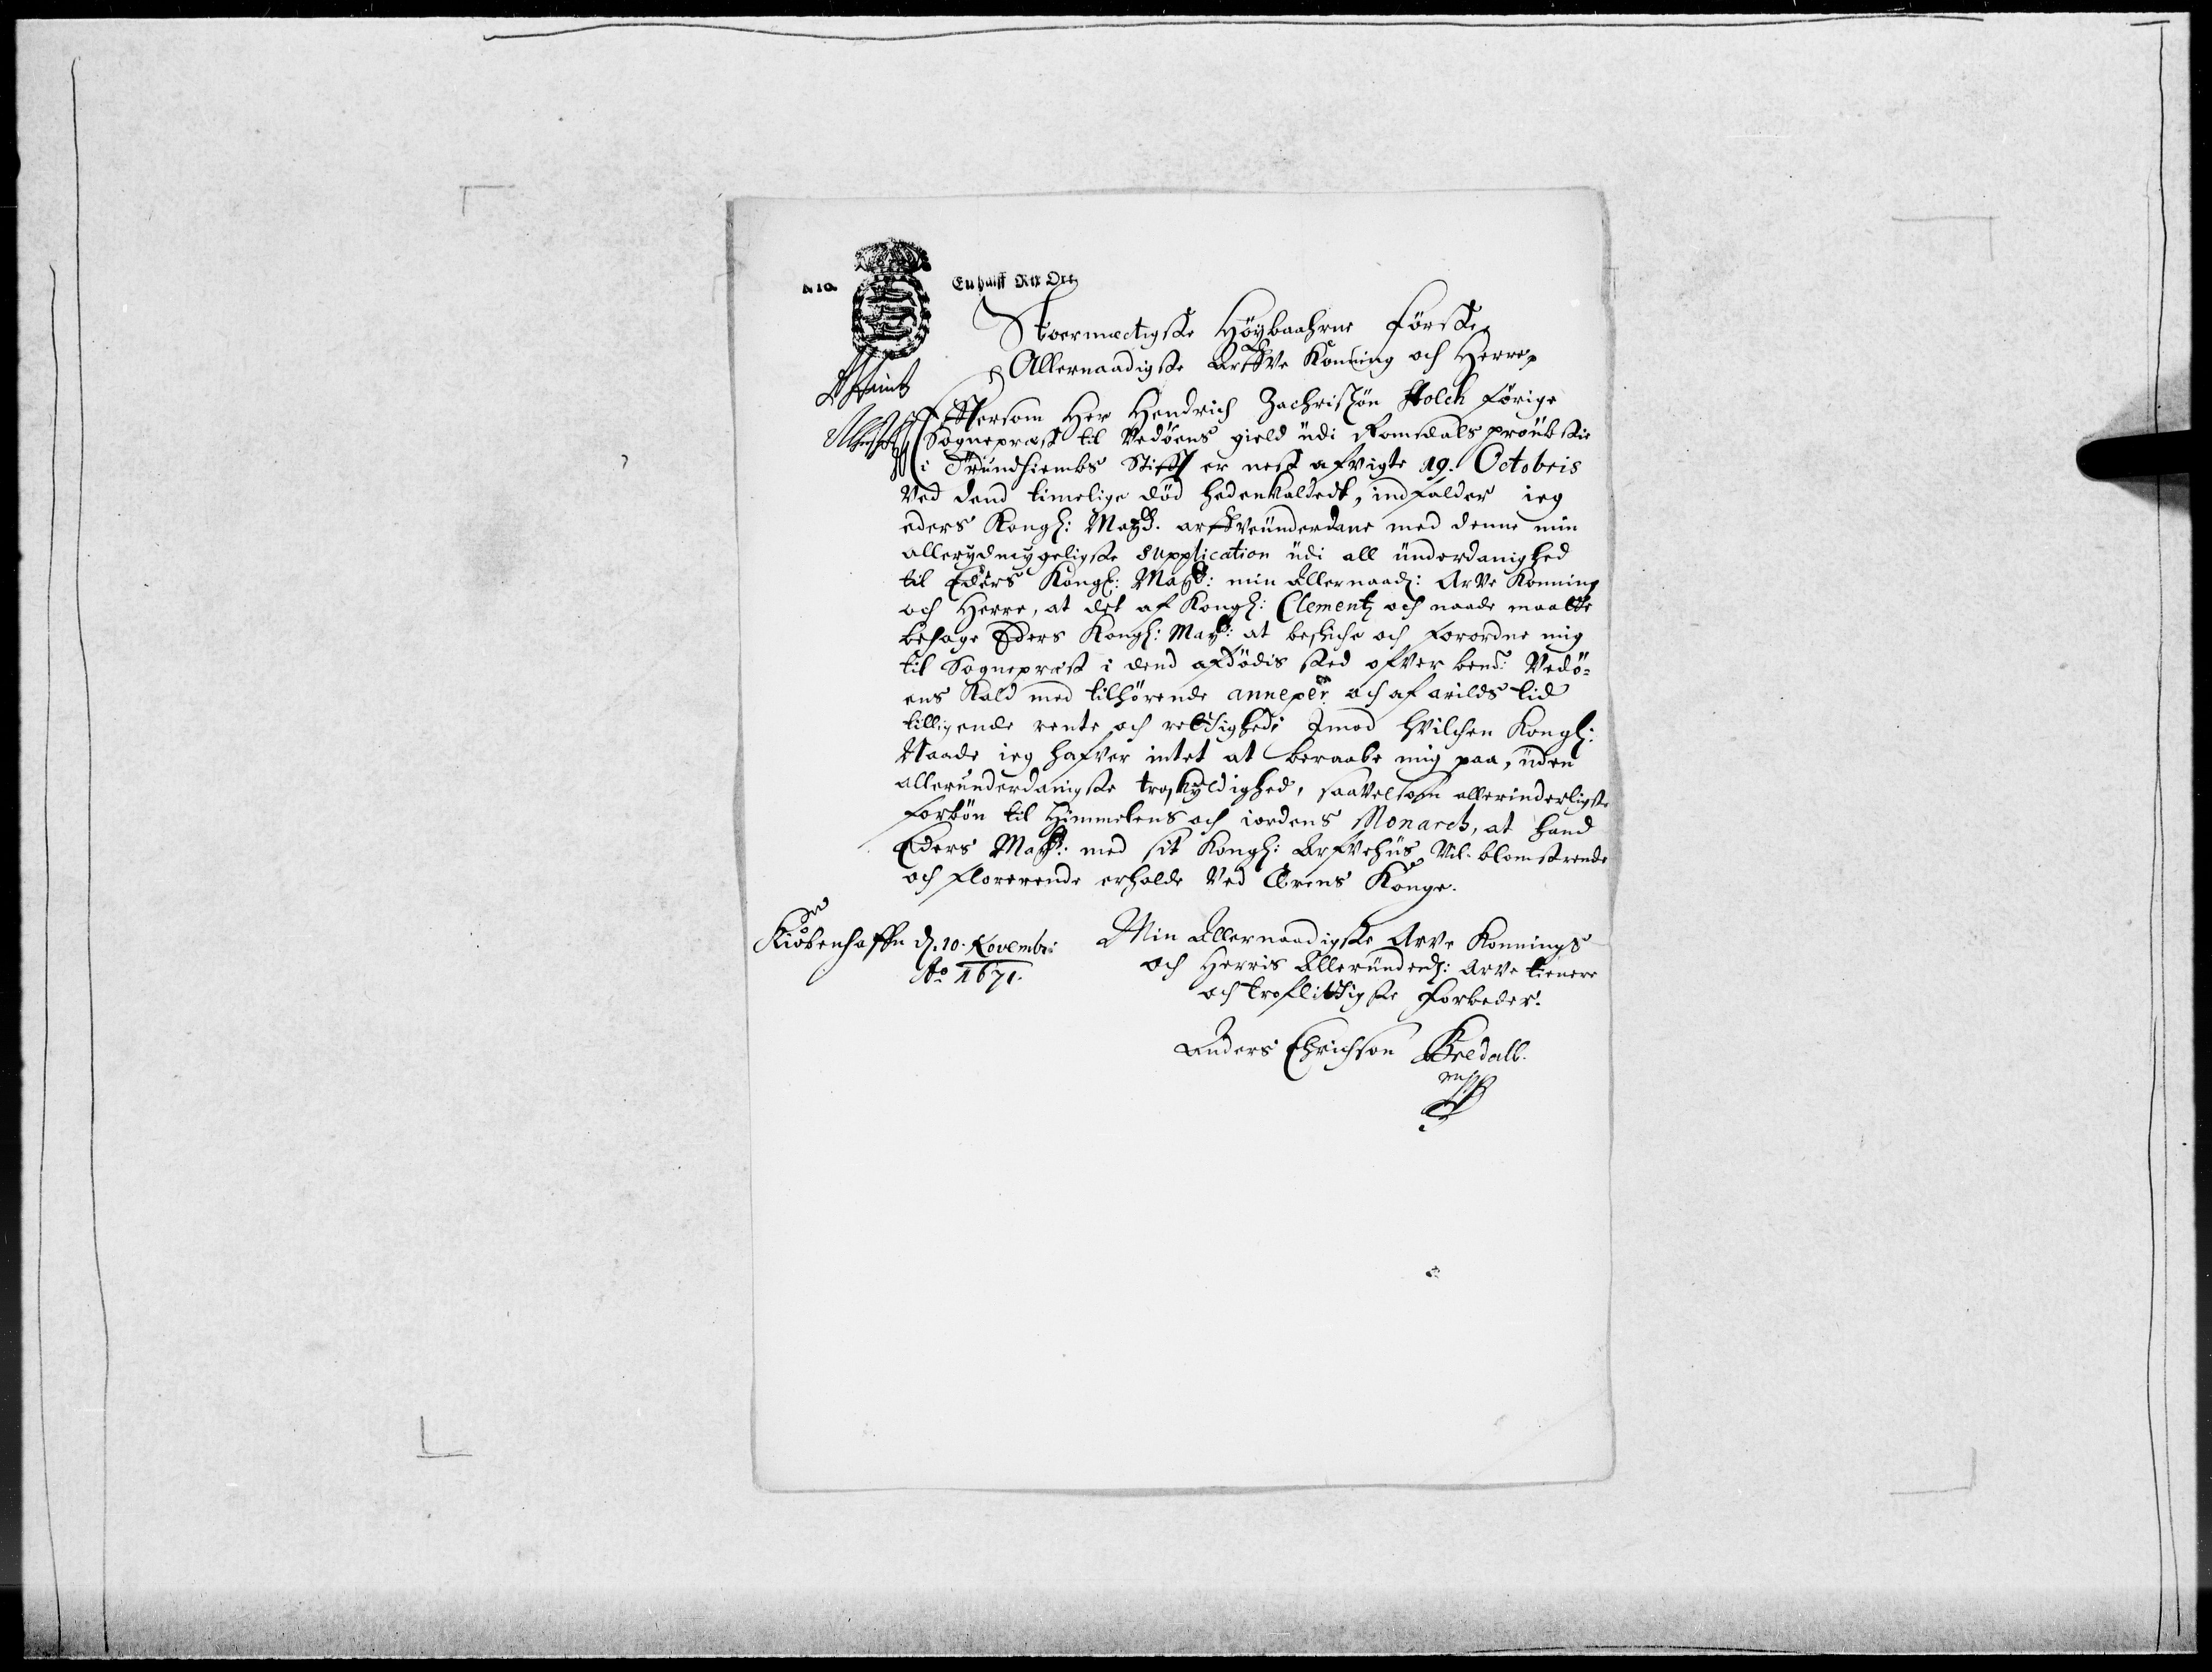 N 10. En halff Rix Ort
Stoermectigste Høybaahrne Første,
Allernaadigste Arffve Konning och Herre,
Effttersom Her Hendrich Zachrissøn Holch førige
Sognepræst til Vedøens gield üdi Romsdals proübstie
i Trundhiembs Stifft er nest afvigte 19. Octobris
Ved dend timelige død hedenkaldedt, indfalder ieg
eders Kongl: Mayt. arffveünderdane med denne min
allerydmygeligste Supplication üdi all ünderdanighed
til Eders Kongl: Mayt: min Allernaad: Arve Konning
och Herre, at det af Kongl: Clementz och naade maatte
behage Eders Kongl: Mayt: at beskiche och forordne mig
til Sognepræst i dend afdødis sted ofver bend: Vedø-
ens Kald med tilhørende annexer och af arilds tid
tilligende rente och rettighed: Imod hvilchen Kongl:
Naade ieg hafver intet at beraabe mig paa, üden
alleründerdanigste troskyldighed, saavelsom allerinderligste
forbøn til Himmelens och iordens Monarch, at hand
Eders Mayt: med sit Kongl: Arfvehüs vil blomstrende
och florerende erholde Ved Ærens Konge.
Kiøbenhaffn d. 10. Novembr:
Ao 1671.
Min Allernaadigste Arve Konnings
och Herris Alleründerd: Arve tienere
och troflittigste forbeder.
Anders Erichsøn Bredall.